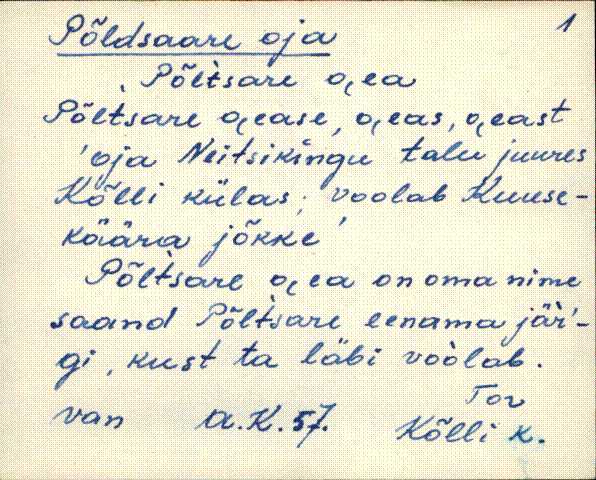 Põldsaare oja 1
Põl̀tsare o̭ea
Põl̀tsare o̭ease, o̭eas, o̭east
'oja Neitsikingu talu juures
Kõlli külas; voolab Kuuse-
käära jõkke'
Põl̀tsare o̭ea on oma nime
saand Põl̀tsare eenama jär̀'-
gi, kust ta läbi voòlab.
Tor
van A.K. 57. Kõlli k.